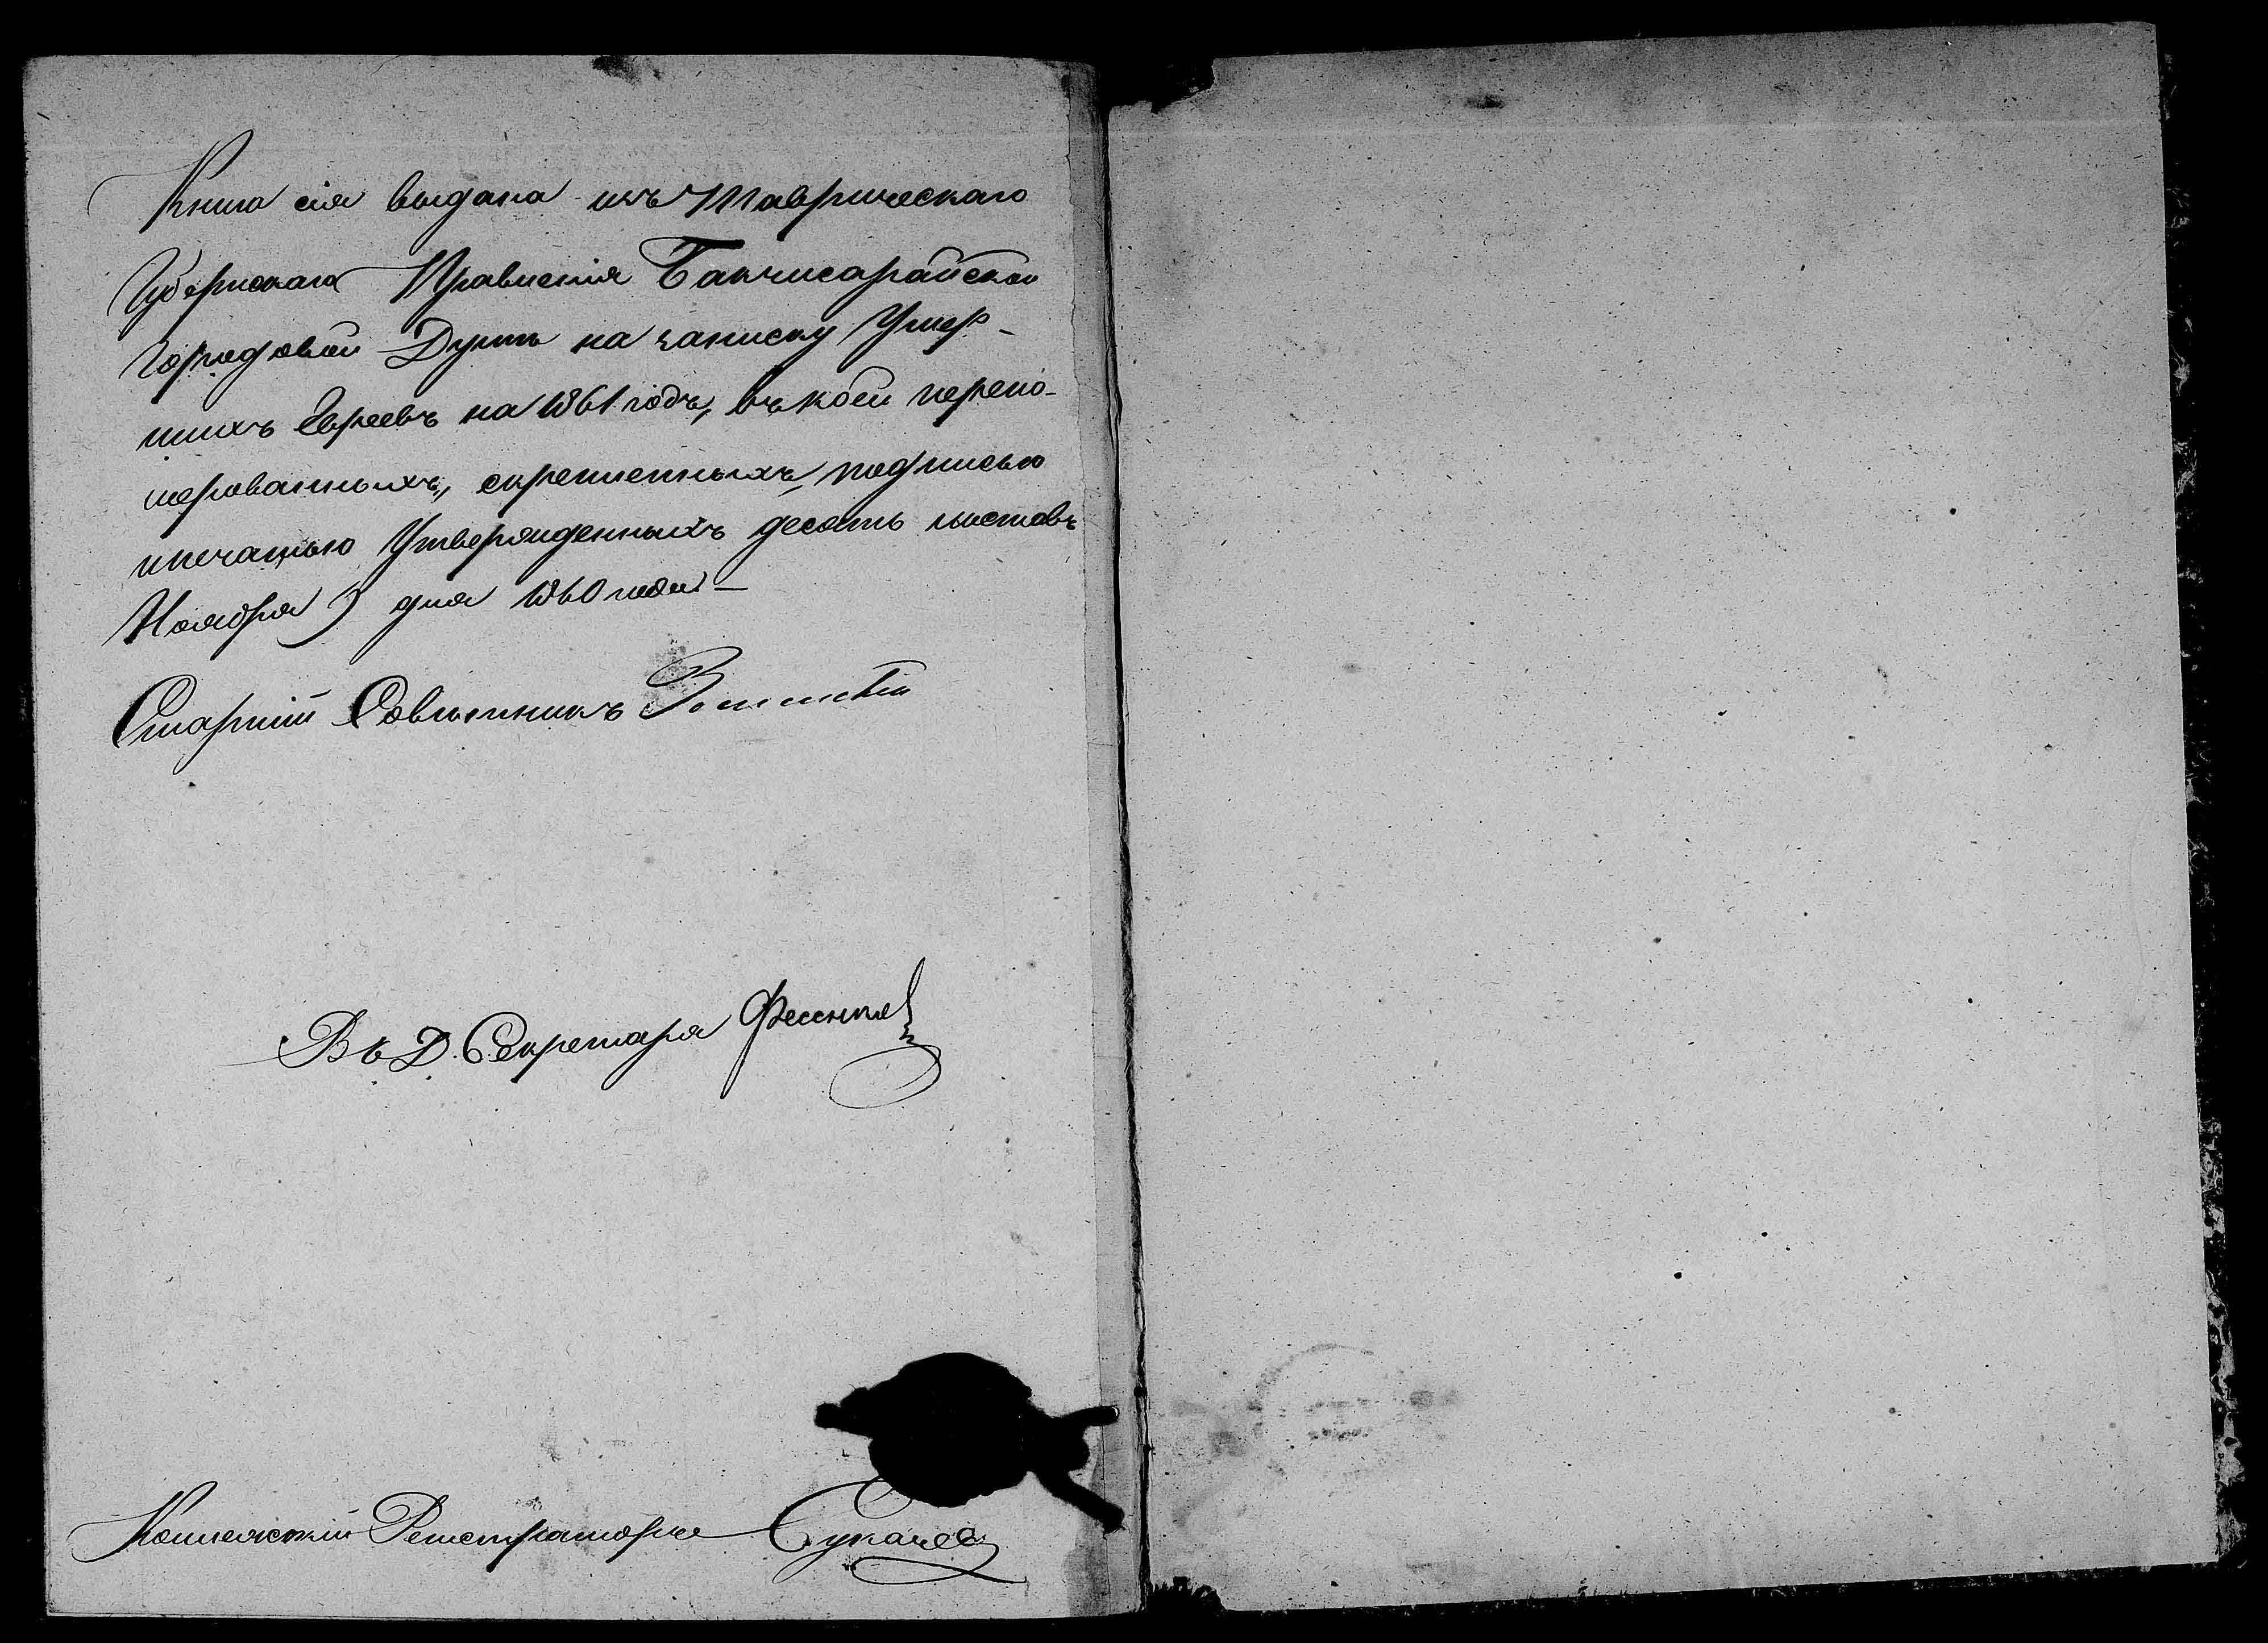 Книга сія выдана изъ Таврическаго
Губернскаго Правленія Бакчисарайской
Городовой Думѣ на записку Умер-
шихъ Евреевъ на 1861 годъ, въ коей перено-
мерованныхъ, скрепленныхъ, подписью
и печатью Утвержденныхъ десять листовъ
Ноября 9 дня 1860 года
Старшій Совѣтникъ
Въ Д. Секретаря Фесенко
Коллежскій Регистраторъ Сукачев